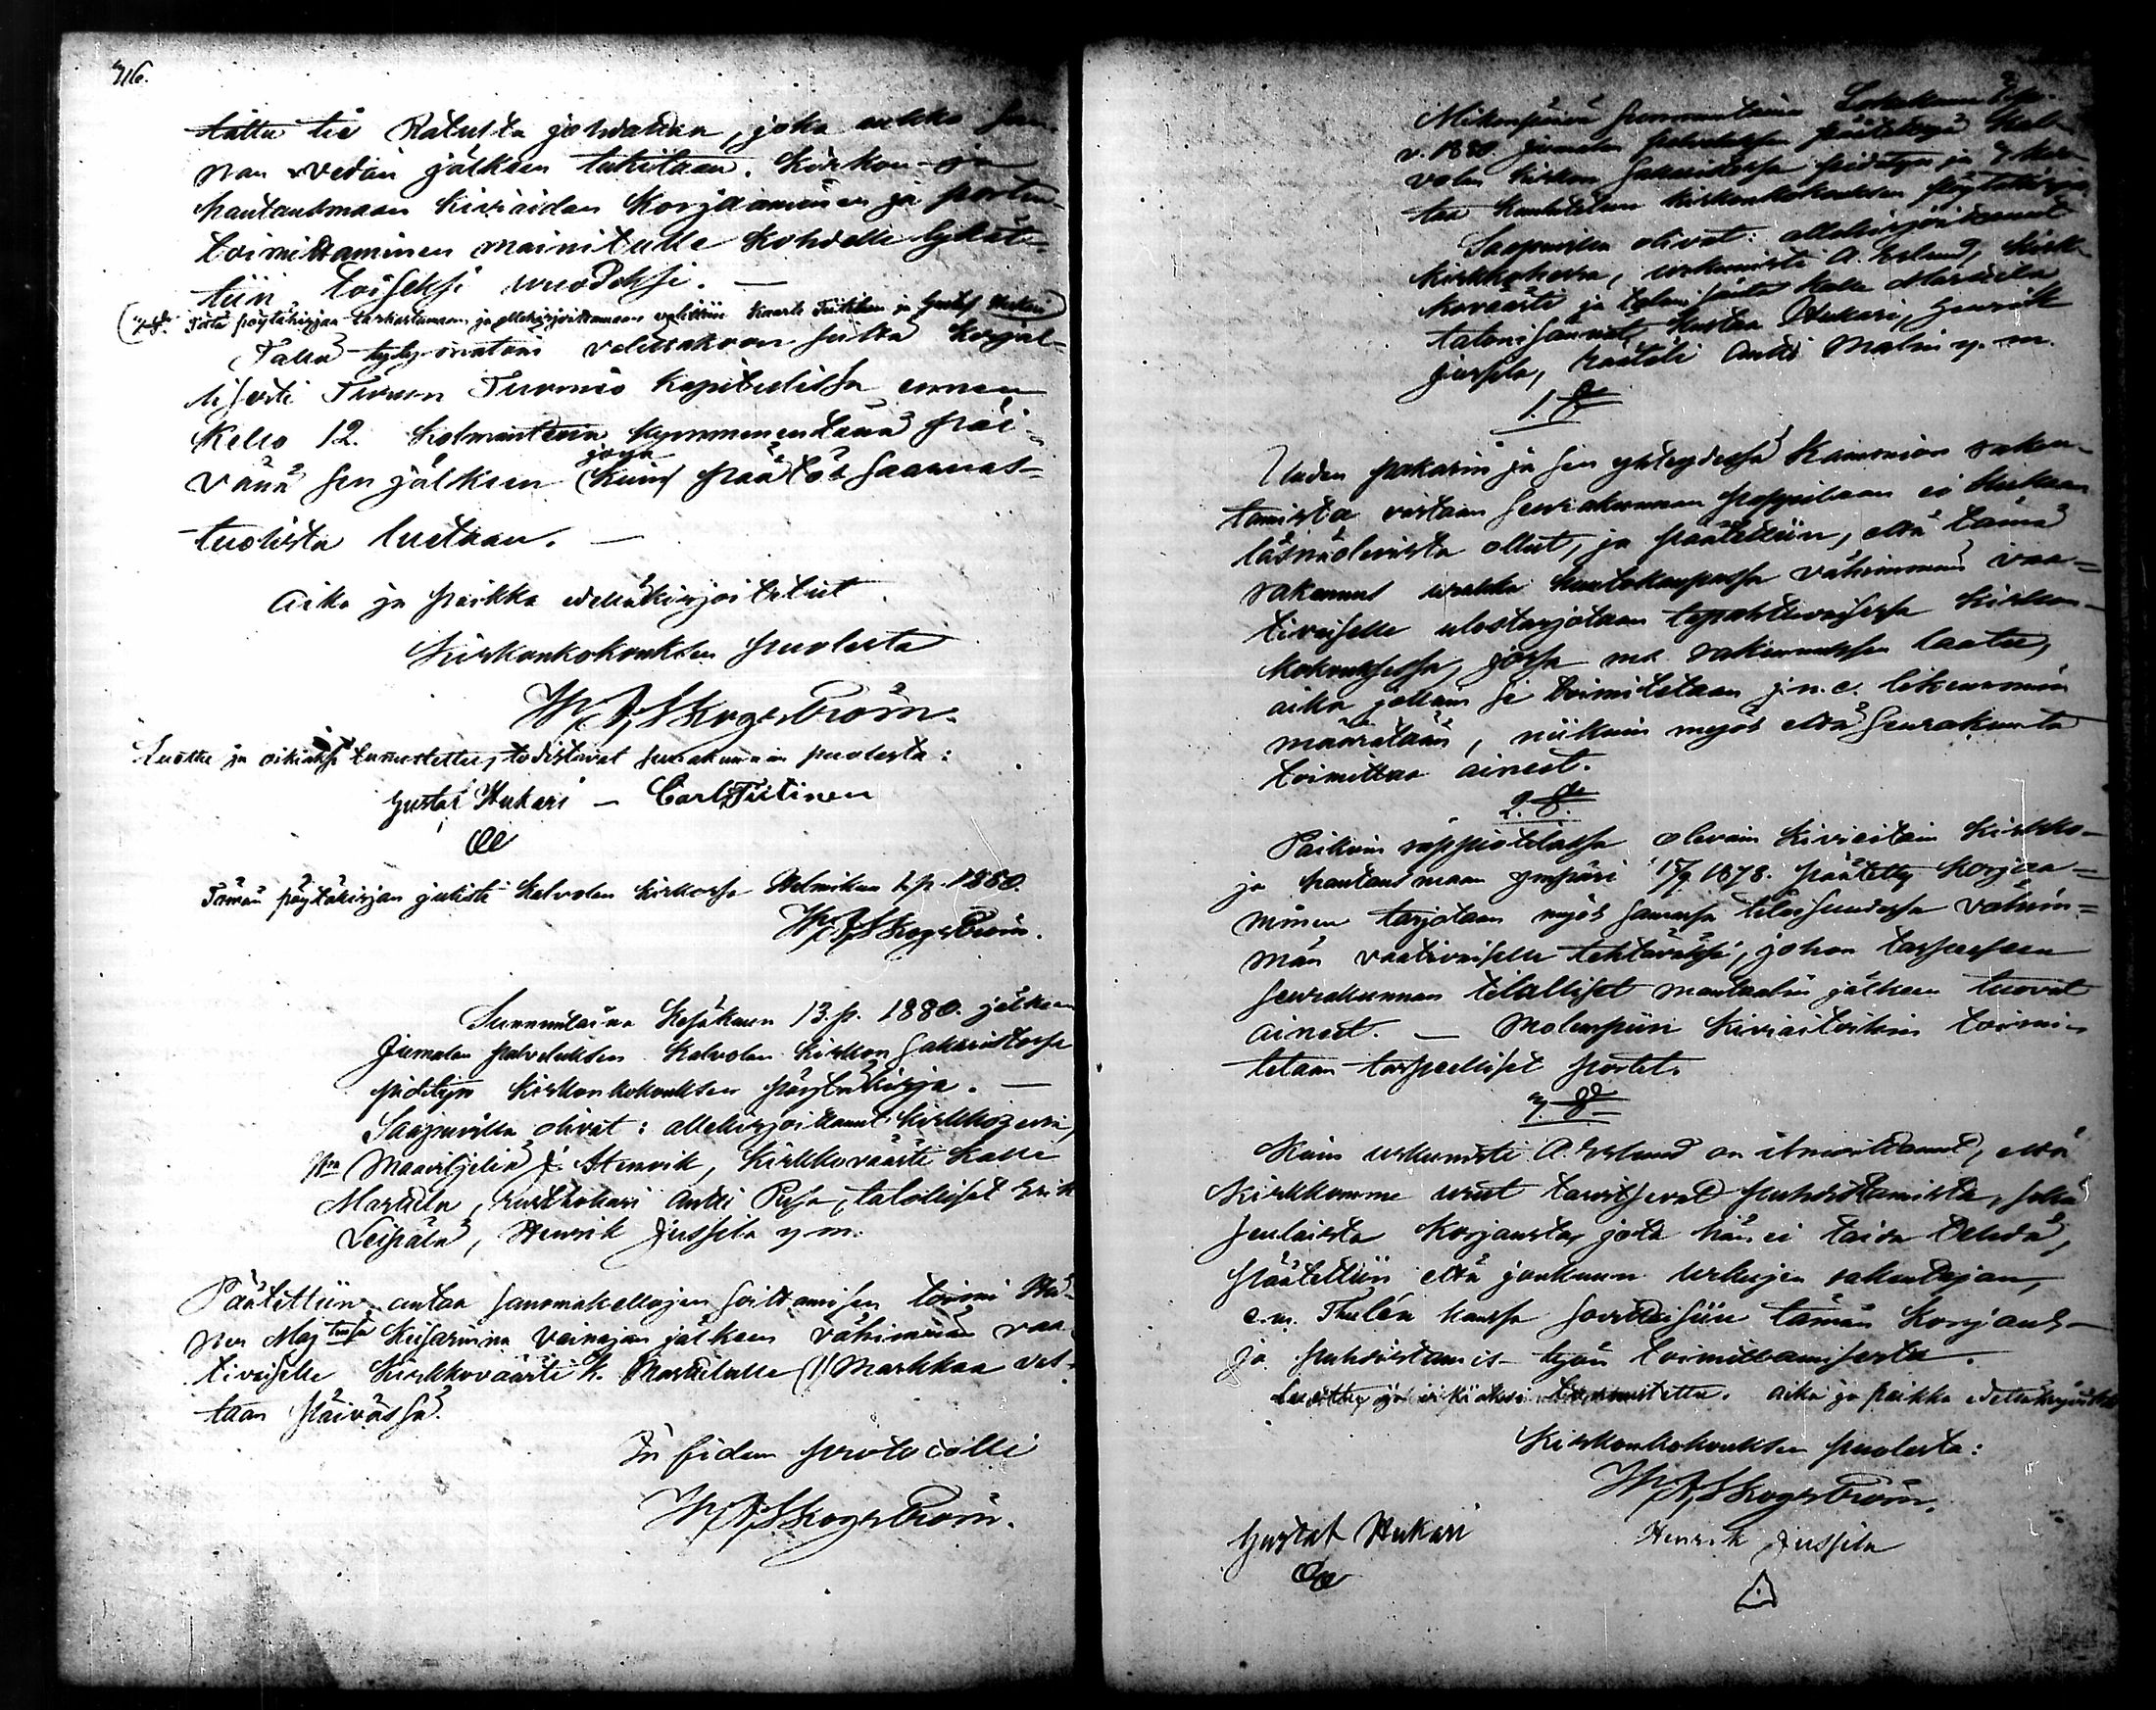 316.
tattu tie Ratusta johdattaa, joka aukko
nan vedän jälkeen tukitaan. Kirkon ja
hautausmaan kiviaidan korjaaminen ja portin
toimittaminen mainitulle kohdalle lykät-
tiin toiseksi vuodeksi. —
Tätä pöytäkirjaa tarkastamaan ja allekirjoittamaan valittiin Kaarle Tiitinen ja Gustaf Hukari
Tähän tyytymätöin valittakoon siitä kirjal-
lisesti Turun Tuomio Kapitulissa ennen
Kello 12. kolmantena kymmenentenä päi-
vänä sen jälkeen kuin
jona
päätös saarnas-
tuolista luetaan. —
Aika ja paikka edelläkirjoitetut.
Kirkonkokouksen puolesta
Skogström.
Luettu ja oikiaksi tunnustettu, todistavat seurakunnan puolesta:
Gustaf Hukari — Carl Tiitinen
Tämän pöytäkirjan julisti Kalvolan kirkossa Helmikuun 1 p. 1880.
Skogström.
Sunnuntaina Kesäkuun 13. p. 1880. jälkeen
Jumalan palveluksen Kalvolan kirkon Sakaristossa
pidetyn kirkonkokouksen pöytäkirja. —
Saapuvilla olivat: allekirjoittanut kirkkoherra,
Hra Maanviljeliä J. Stenvik, kirkkoväärti Kalle
Marttila, rustitilallinen Antti Pusa, talolliset Erik
Leipälä, Henrik Jussila y. m.
Päätettiin antaa sanomakellojen soittamisen toimi Hä-
nen Maj:tinsa Keisarinna Vainajan jälkeen vähimmän vaa-
tivaiselle kirkkoväärti K. Marttilalle (1) Markkaa vas-
taan päivässä.
In fidem protocolli
Skogström.
Mikonpäivä sunnuntaina Lokakuun
v. 1880. Jumalan palveluksen päätettyä Kal-
volan kirkon sakaristossa pidetyn ja
taa kuulutetun kirkonkokouksen pöytäkirja.
Saapuvilla olivat: allekirjoittanut
kirkkoherra, urkunisti A. Eklund, kirk-
koväärti ja talonisäntä Kalle Marttila
talonisännät Kustaa Hukari, Henrik
Jussila, räätäli Antti Malin y. m.
1. §
Uuden pakarin ja sen yhteydessä kamarion raken-
tamista vastaan seurakunnan pappilaan ei kukaan
läsnäolevista ollut, ja päätettiin, että tämä
rakennus urakka huutokaupassa vähimmän vaa-
tivaiselle ulostarjotaan tapahtuvaisessa kirkon-
kokouksessa, jossa m. m. rakennuksen laatu,
aika jolloin se toimitetaan j. n. e. likemmin
määrätään, niinkuin myös että seurakunta
toimittaa aineet.
2. §.
Paikoin rappiotilassa olevain kiviaitain kirkko-
ja hautausmaan ympäri 1878. päätetty korjaa-
minen tarjotaan myös samassa tilaisuudessa vähim-
män vaativaiselle tehtäväksi, johon tarpeeseen
seurakunnan tilalliset manttaalin jälkeen tuovat
aineet. — Molempiin kiviaitoihin toimi-
tetaan tarpeelliset portit.
3 §
Kuin urkunisti A. Eklund on ilmoittanut, että
kirkkomme urut tarvitsevat puhdistamista, sekä
senlaista korjausta, jota hän ei taida tehdä,
päätettiin että jonkun urkujen rakentajan,
e. m. Thulén kanssa sovittaisiin tämän korjaus-
ja puhdistamis-työn toimittamisesta.
Luettu ja oikiaksi tunnustettu. Aika ja paikka edelläkirjoitetut
Kirkonkokouksen puolesta:
Skogström.
Gustaf Hukari
Henrik Jussila